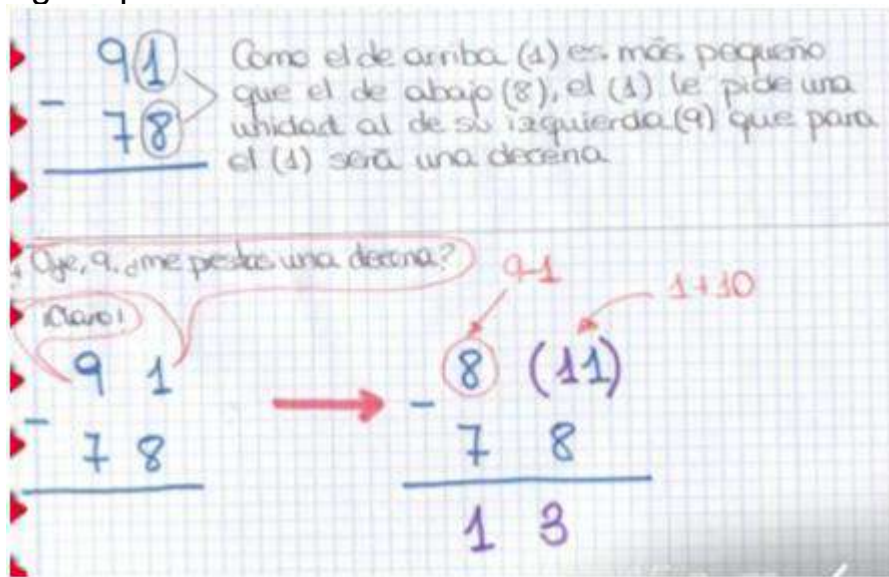 91
Como el de arriba (1) es más pequeño
que el de abajo (8), el (1) le pide una
- 78
unidad al de su izquierda (9) que para
el (1) será una decena
Oye, 9, ¿me prestas una decena?
9-1
1+10
¡Claro!
9 1
8 (11)
- 7 8
- 7 8
1 3